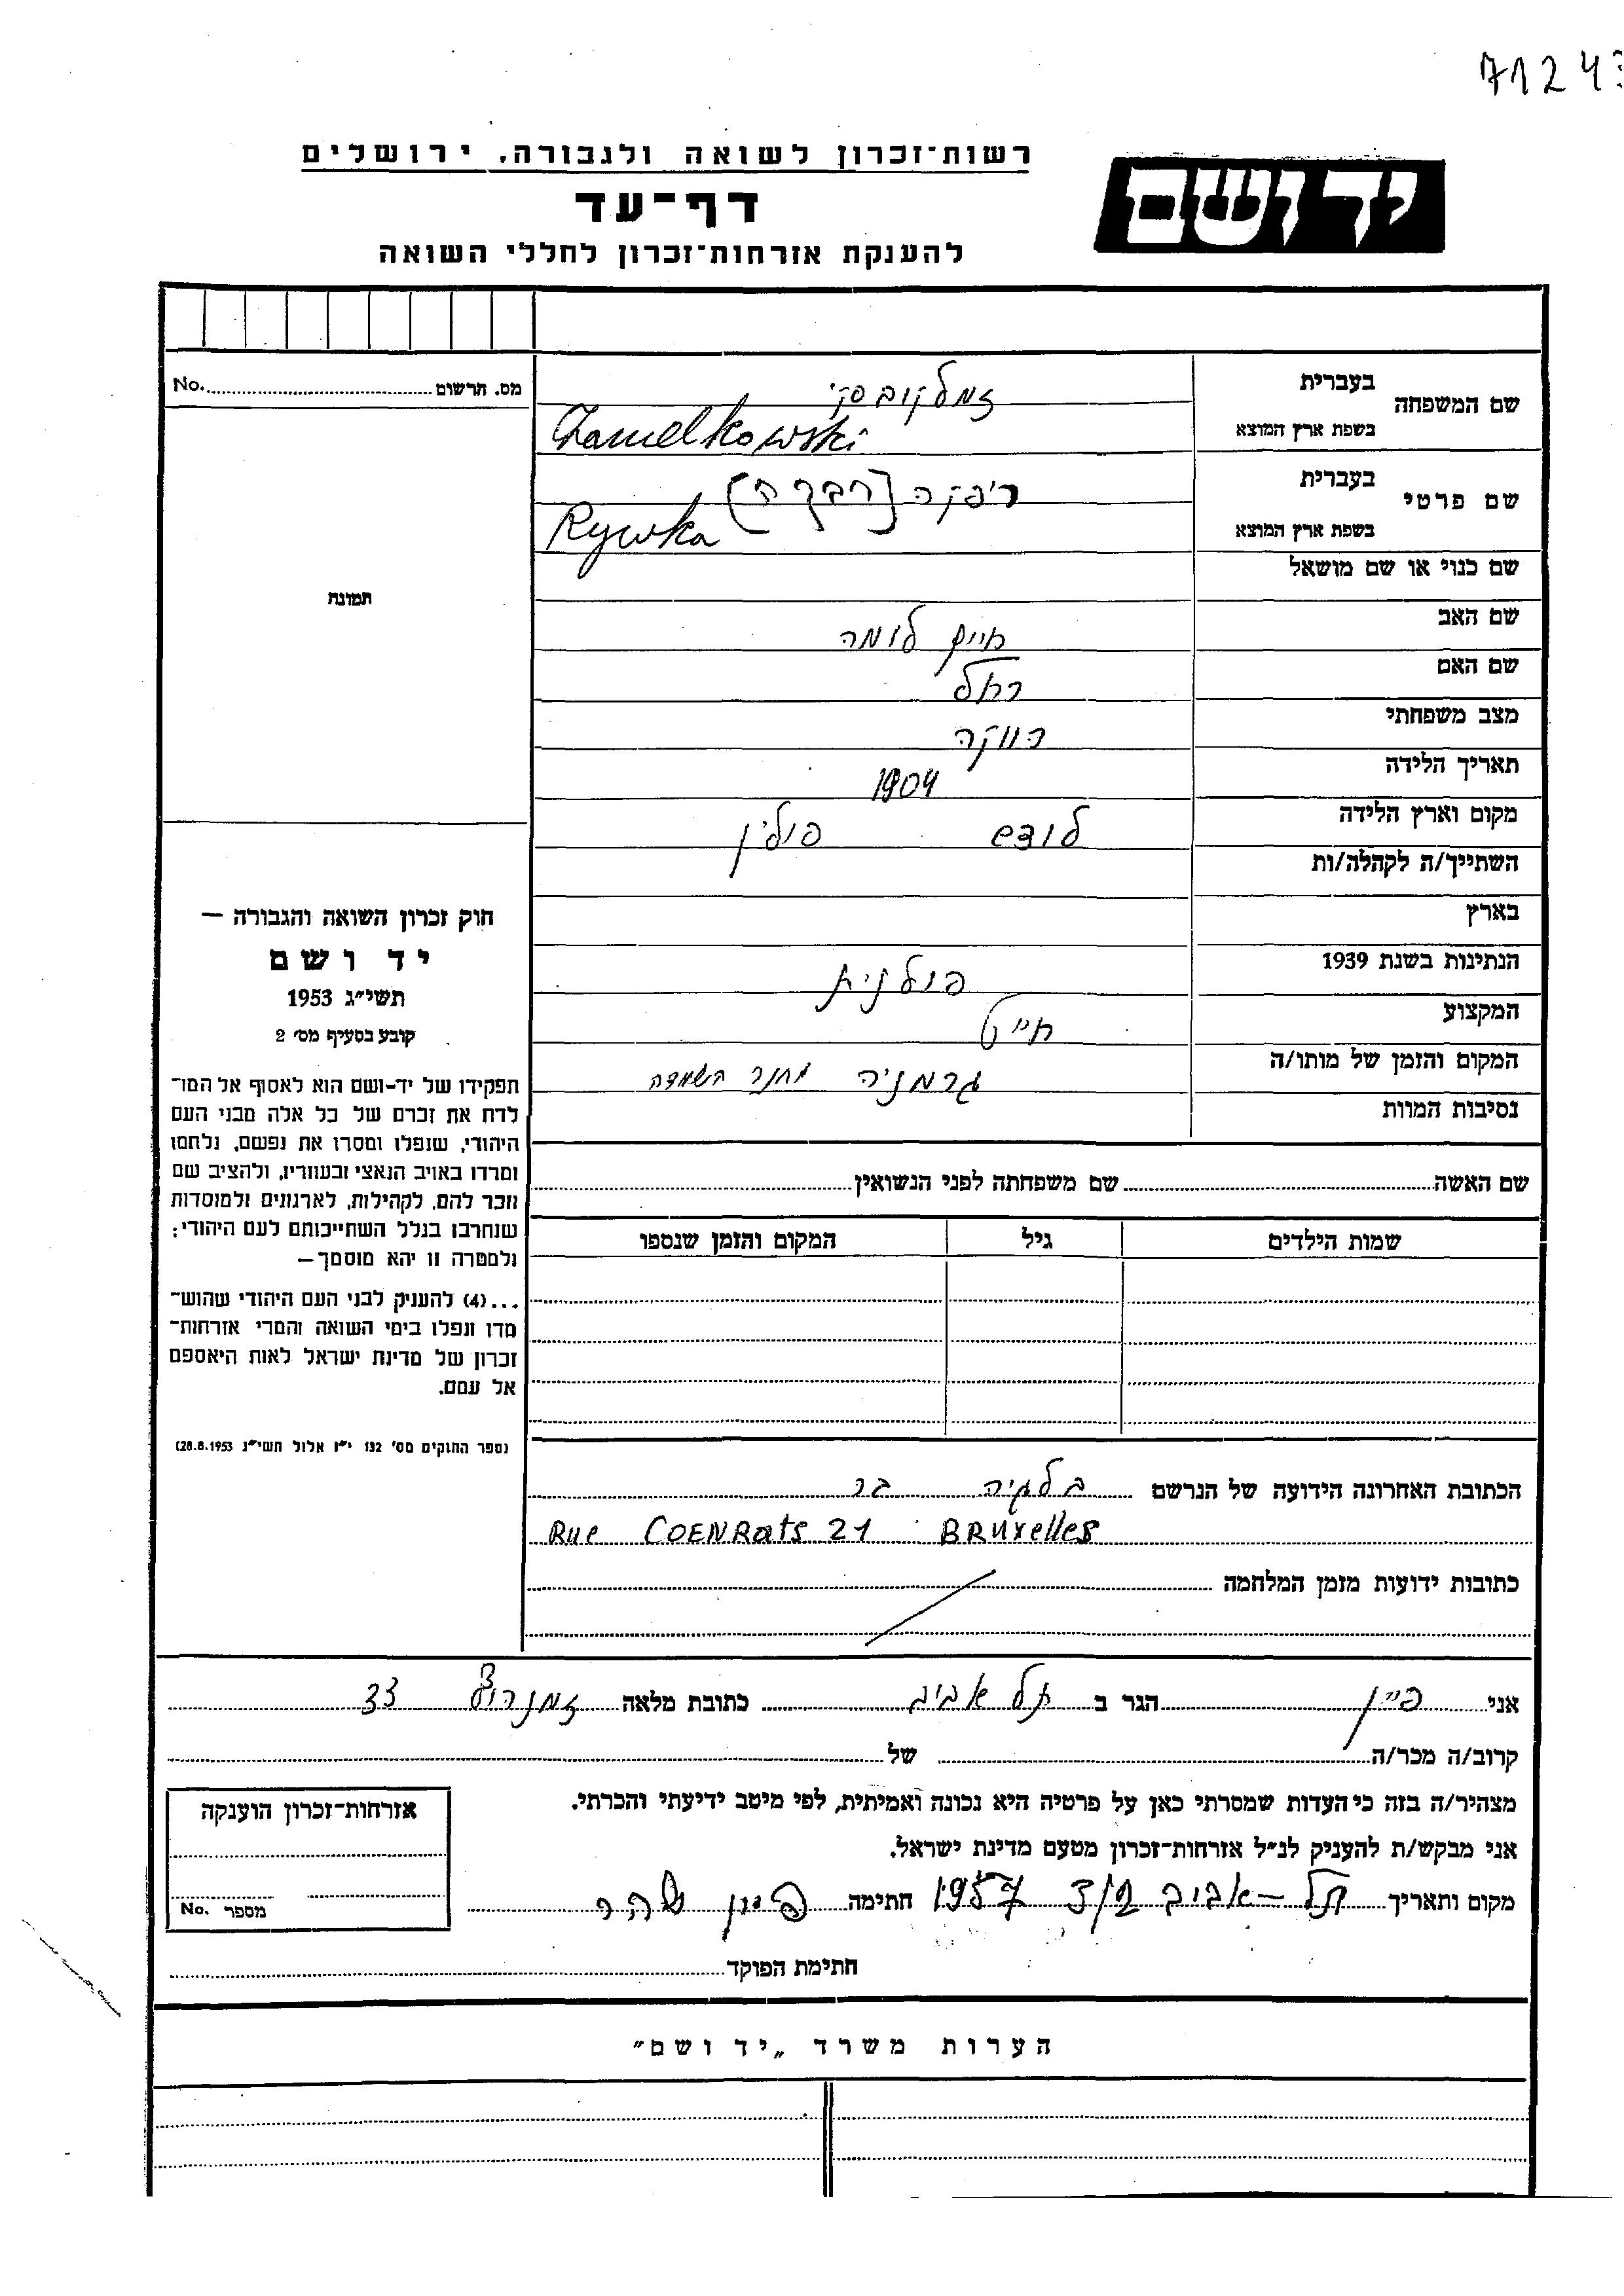 71243
רשות־זכרון לשואה ולגבורה, ירושלים
יד ושם
דף־עד
להענקת אזרחות־זכרון לחללי השואה
מס. תרשום No.
תמונה
שם המשפחה
בעברית זמלקובסקי
בשפת ארץ המוצא Zamelkowski
שם פרטי
בעברית ריפקה [רבקה]
בשפת ארץ המוצא Rywka
שם כנוי או שם מושאל
שם האב חיים
שם האם רחל
מצב משפחתי רווקה
תאריך הלידה 1904
מקום וארץ הלידה לודש פולין
השתייך/ה לקהלה/ות
בארץ
הנתינות בשנת 1939 פולנית
המקצוע חייט
המקום והזמן של מותו/ה גרמניה מחנה השמדה
נסיבות המוות
שם האשה שם משפחתה לפני הנשואין
שמות הילדים גיל המקום והזמן שנספו
הכתובת האחרונה הידועה של הנרשם בלגיה
Rue COENRats 21 BRuxelles
כתובות ידועות מזמן המלחמה
חוק זכרון השואה והגבורה —
יד ושם
תשי״ג 1953
קובע בסעיף מס׳ 2
תפקידו של יד-ושם הוא לאסוף אל המו־
לדת את זכרם של כל אלה מבני העם
היהודי, שנפלו ומסרו את נפשם, נלחמו
ומרדו באויב הנאצי ובעוזריו, ולהציב שם
וזכר להם, לקהילות, לארגונים ולמוסדות
שנחרבו בגלל השתייכותם לעם היהודי;
ולמטרה זו יהא מוסמך—
...(4) להעניק לבני העם היהודי שהוש־
מדו ונפלו בימי השואה והמרי אזרחות־
זכרון של מדינת ישראל לאות היאספם
אל עמם.
(ספר החוקים מס׳ 132 י״ז אלול תשי״ג 28.8.1953)
אני פיין הגר ב תל אביב כתובת מלאה זמנהוף 33
קרוב/ה מכר/ה של
מצהיר/ה בזה כי העדות שמסרתי כאן על פרטיה היא נכונה ואמיתית, לפי מיטב ידיעתי והכרתי.
אני מבקש/ת להעניק לנ״ל אזרחות־זכרון מטעם מדינת ישראל.
מקום ותאריך תל-אביב 1957 חתימה פיין שרה
חתימת הפוקד
אזרחות־זכרון הוענקה
מספר No.
הערות משרד „יד ושם״